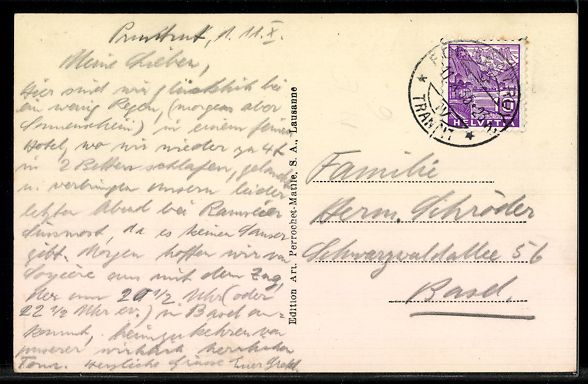 Pruntrut, d. 11. X.
Meine Lieben,
Hier sind wir glücklich bei
ein wenig Regen, (morgen aber
Sonnenschein) in einem feinen
Hotel, wo wir wieder zu 4t
in 2 Betten schlafen, gelandet
u. verbringen unsern leider
letzten Abend bei
da es keinen Sauser
gibt. Morgen hoffen wir von
aus mit dem Zug,
der um 20 1/2 Uhr (oder
22 1/2 Uhr ev.) in Basel an-
kommt, heimzukehren von
unserer wirklich herrlichen
Tour. Herzliche Grüsse Euer
Edition Art. Perrochet-Matile, S. A., Lausanne
TRANSIT
HELVETIA
Familie
Herm. Schröder
Schwarzwaldallee 56
Basel.